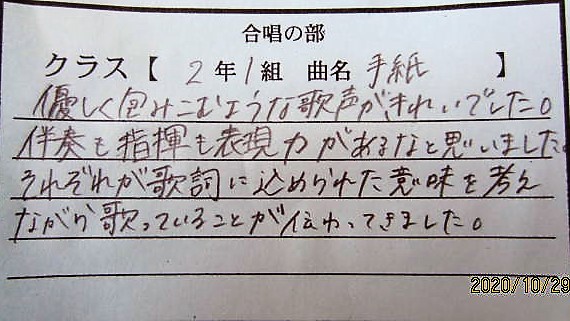 合唱の部
クラス【 2年1組 曲名 手紙 】
優しく包みこむような歌声がきれいでした。
伴奏も指揮も表現力があるなと思いました。
それぞれが歌詞に込められた意味を考え
ながら歌っていることが伝わってきました。
2020/10/29